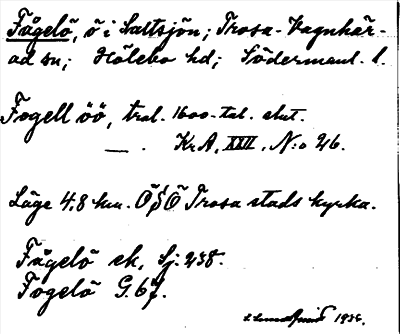 Fågelö, ö i Saltsjön; Trosa-Vagnhär-
ad sn; Hölebo hd; Södermanl. l.
Fogell öö, trol. 1600-tal. slut.
— . Kr.A. XXII. N:o 26.
Läge 4.8 km. ÖSÖ Trosa stads kyrka.
Fågelö ek. Sj: 238.
Fogelö G. 67.
1936.